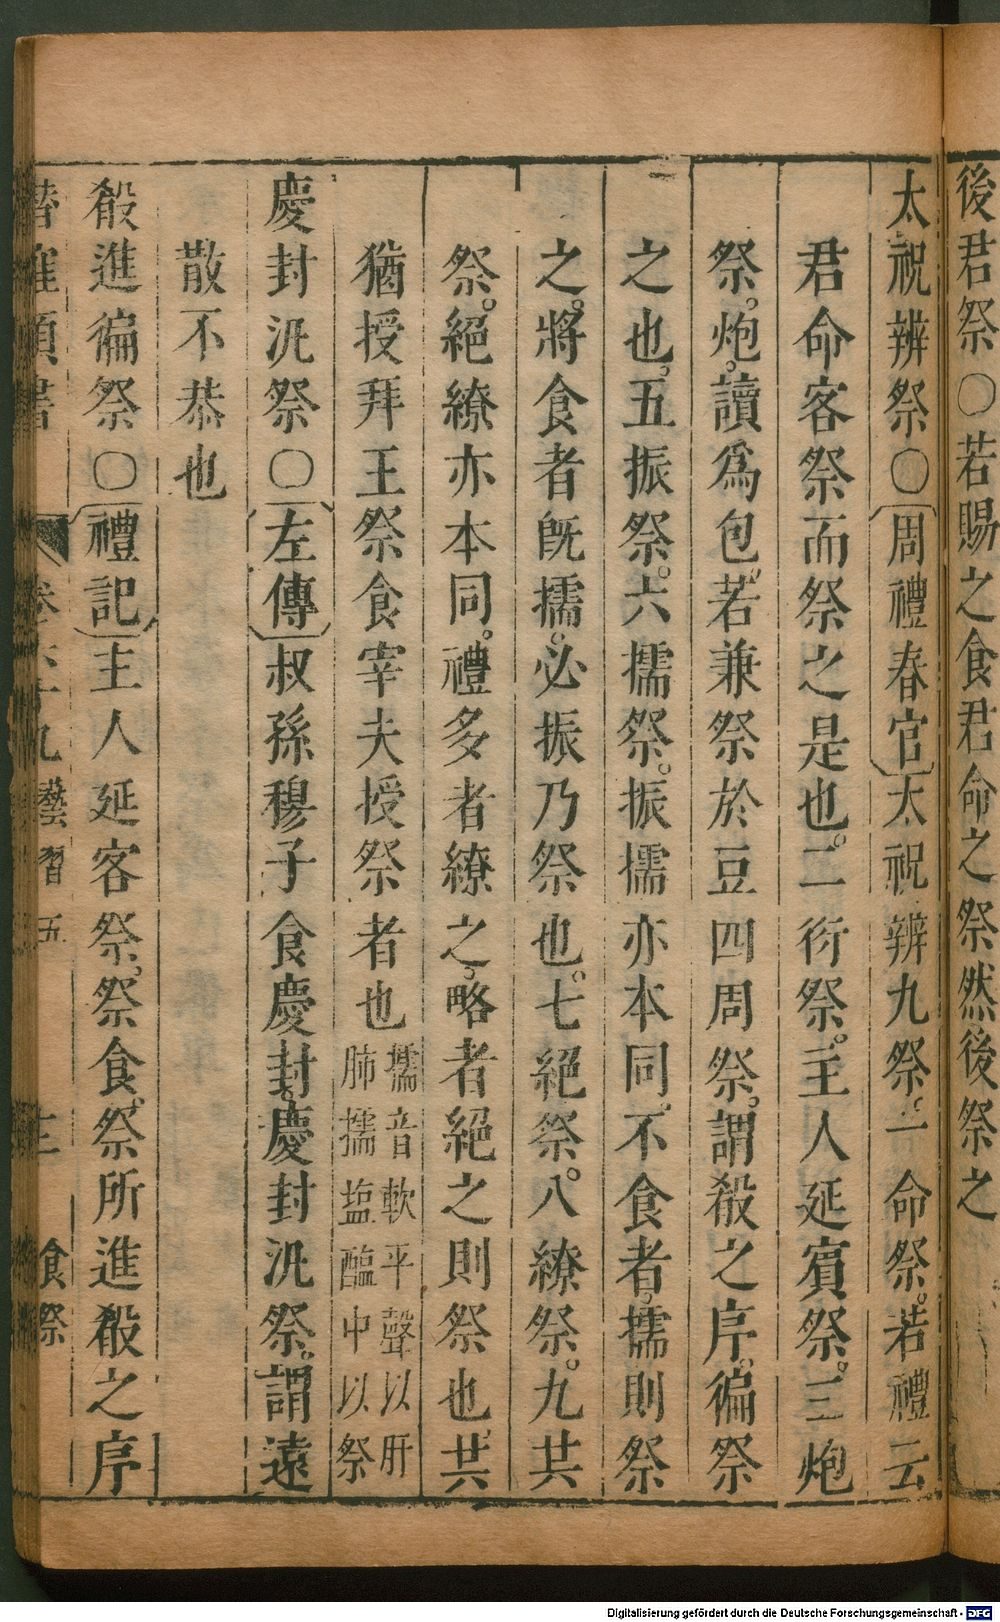 後君祭〇若賜之食君命之祭然後祭之
太祝辨祭〇周禮春官太祝辨九祭。一命祭。若禮云
君命客祭而祭之是也。二衍祭。主人延賓祭。三炮
祭。炮。讀爲包。若兼祭於豆四周祭。謂殽之序。徧祭
之也。五振祭。六擩祭。振擩亦本同。不食者。擩則祭
之。將食者旣擩。必振乃祭也。七絕祭。八繚祭。九共
祭。絕繚亦本同。禮多者繚之。略者絕之則祭也。共
猶授拜王祭食宰夫授祭者也擩音軟平聲以肝肺擩塩醢中以祭
慶封汎祭〇左傳叔孫穆子食慶封。慶封汎祭。謂遠
散不恭也
殽進徧祭〇禮記主人延客祭。祭食。祭所進殽之序
卷六十九 藝習五 十二 食祭
Digitalisierung gefördert durch die Deutsche Forschungsgemeinschaft - DFG